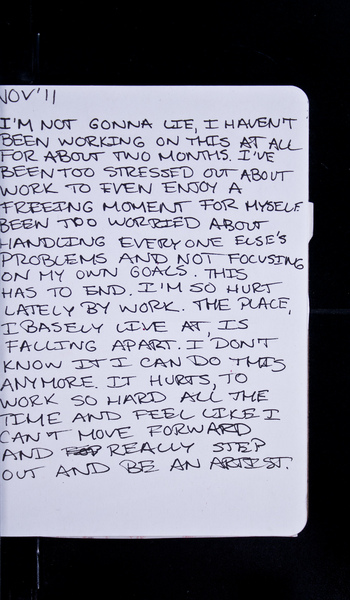 NOV'11
I'M NOT GONNA LIE, I HAVEN'T
BEEN WORKING ON THIS AT ALL
FOR ABOUT TWO MONTHS. I'VE
BEEN TOO STRESSED OUT ABOUT
WORK TO EVEN ENJOY A
FREEING MOMENT FOR MYSELF.
BEEN TOO WORRIED ABOUT
HANDLING EVERYONE ELSE'S
PROBLEMS AND NOT FOCUSING
ON MY OWN GOALS. THIS
HAS TO END. I'M SO HURT
LATELY BY WORK. THE PLACE,
I BASELY LIVE AT, IS
FALLING APART. I DON'T
KNOW IT I CAN DO THIS
ANYMORE. IT HURTS, TO
WORK SO HARD ALL THE
TIME AND FEEL LIKE I
CAN'T MOVE FORWARD
AND REALLY STEP
OUT AND BE AN ARTIST.